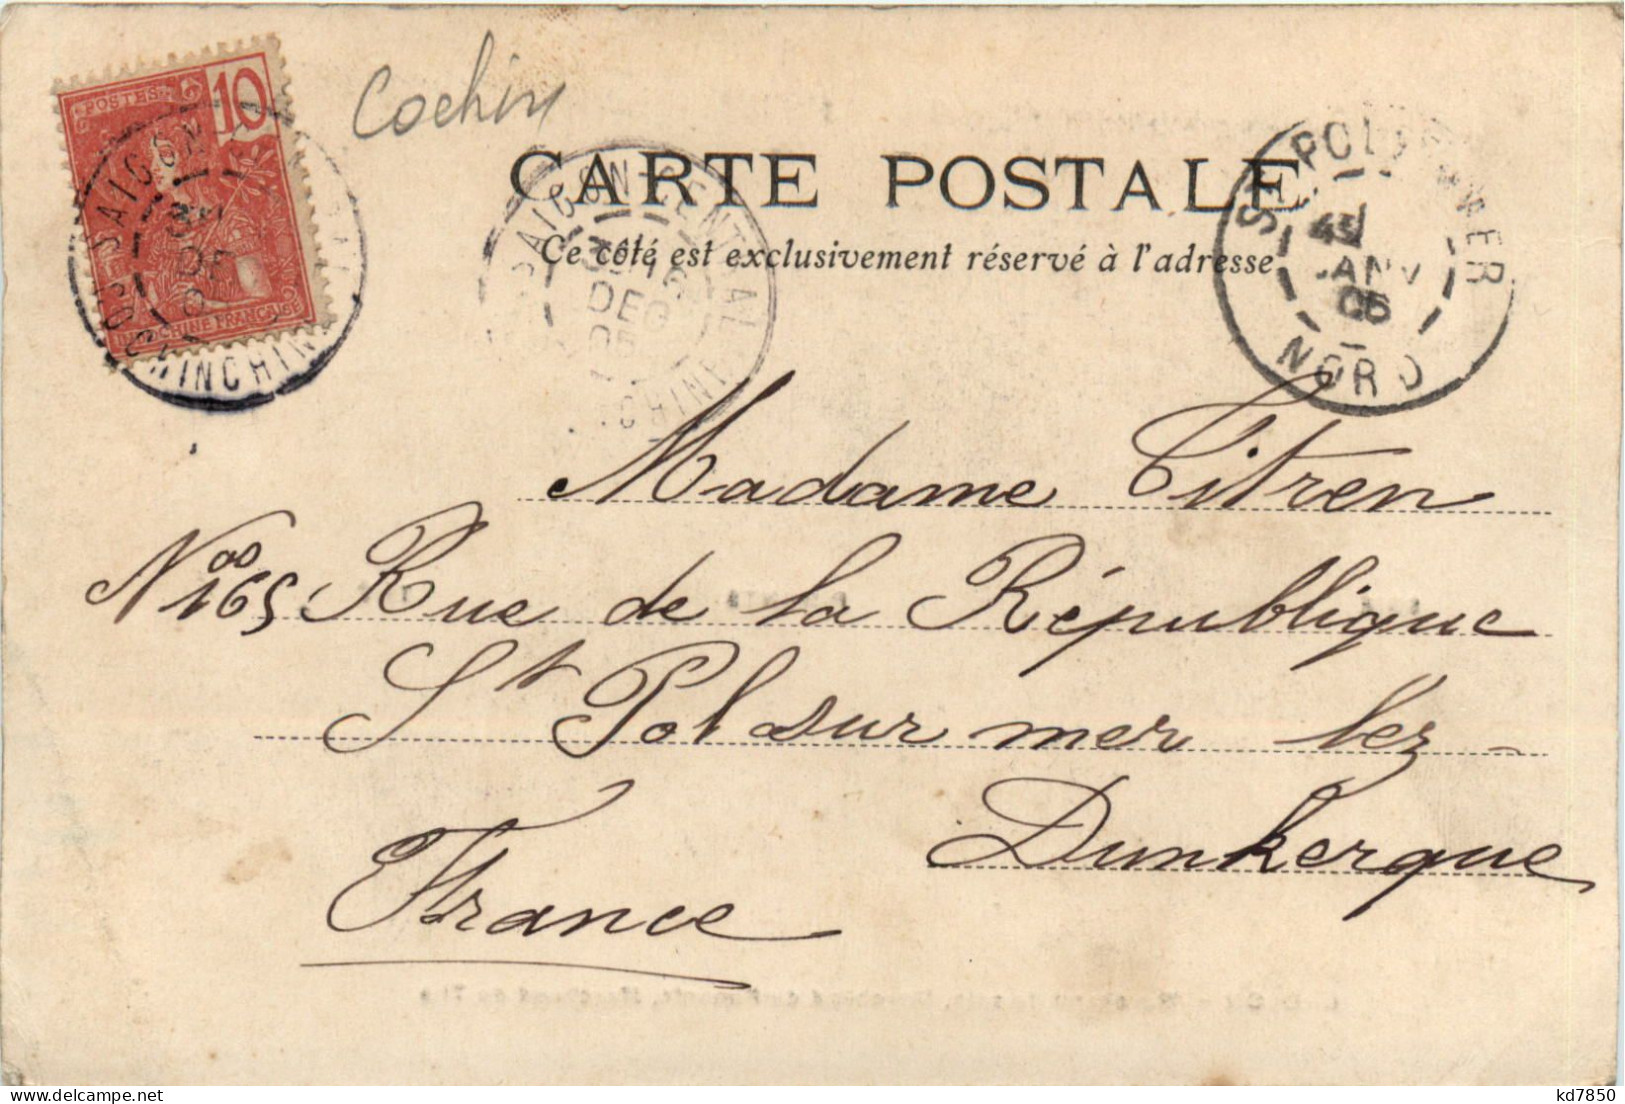 POSTES
10
INDOCHINE FRANÇAISE
Cochin
CARTE POSTALE
Ce côté est exclusivement réservé à l'adresse
SAIGON-CENTRAL
DEC
05
COCHINCHINE
ST POL SUR MER
JANV
06
NORD
Madame Citren
Nºº 165 Rue de la République
St Pol sur mer lez-
Dunkerque
France
kd7850